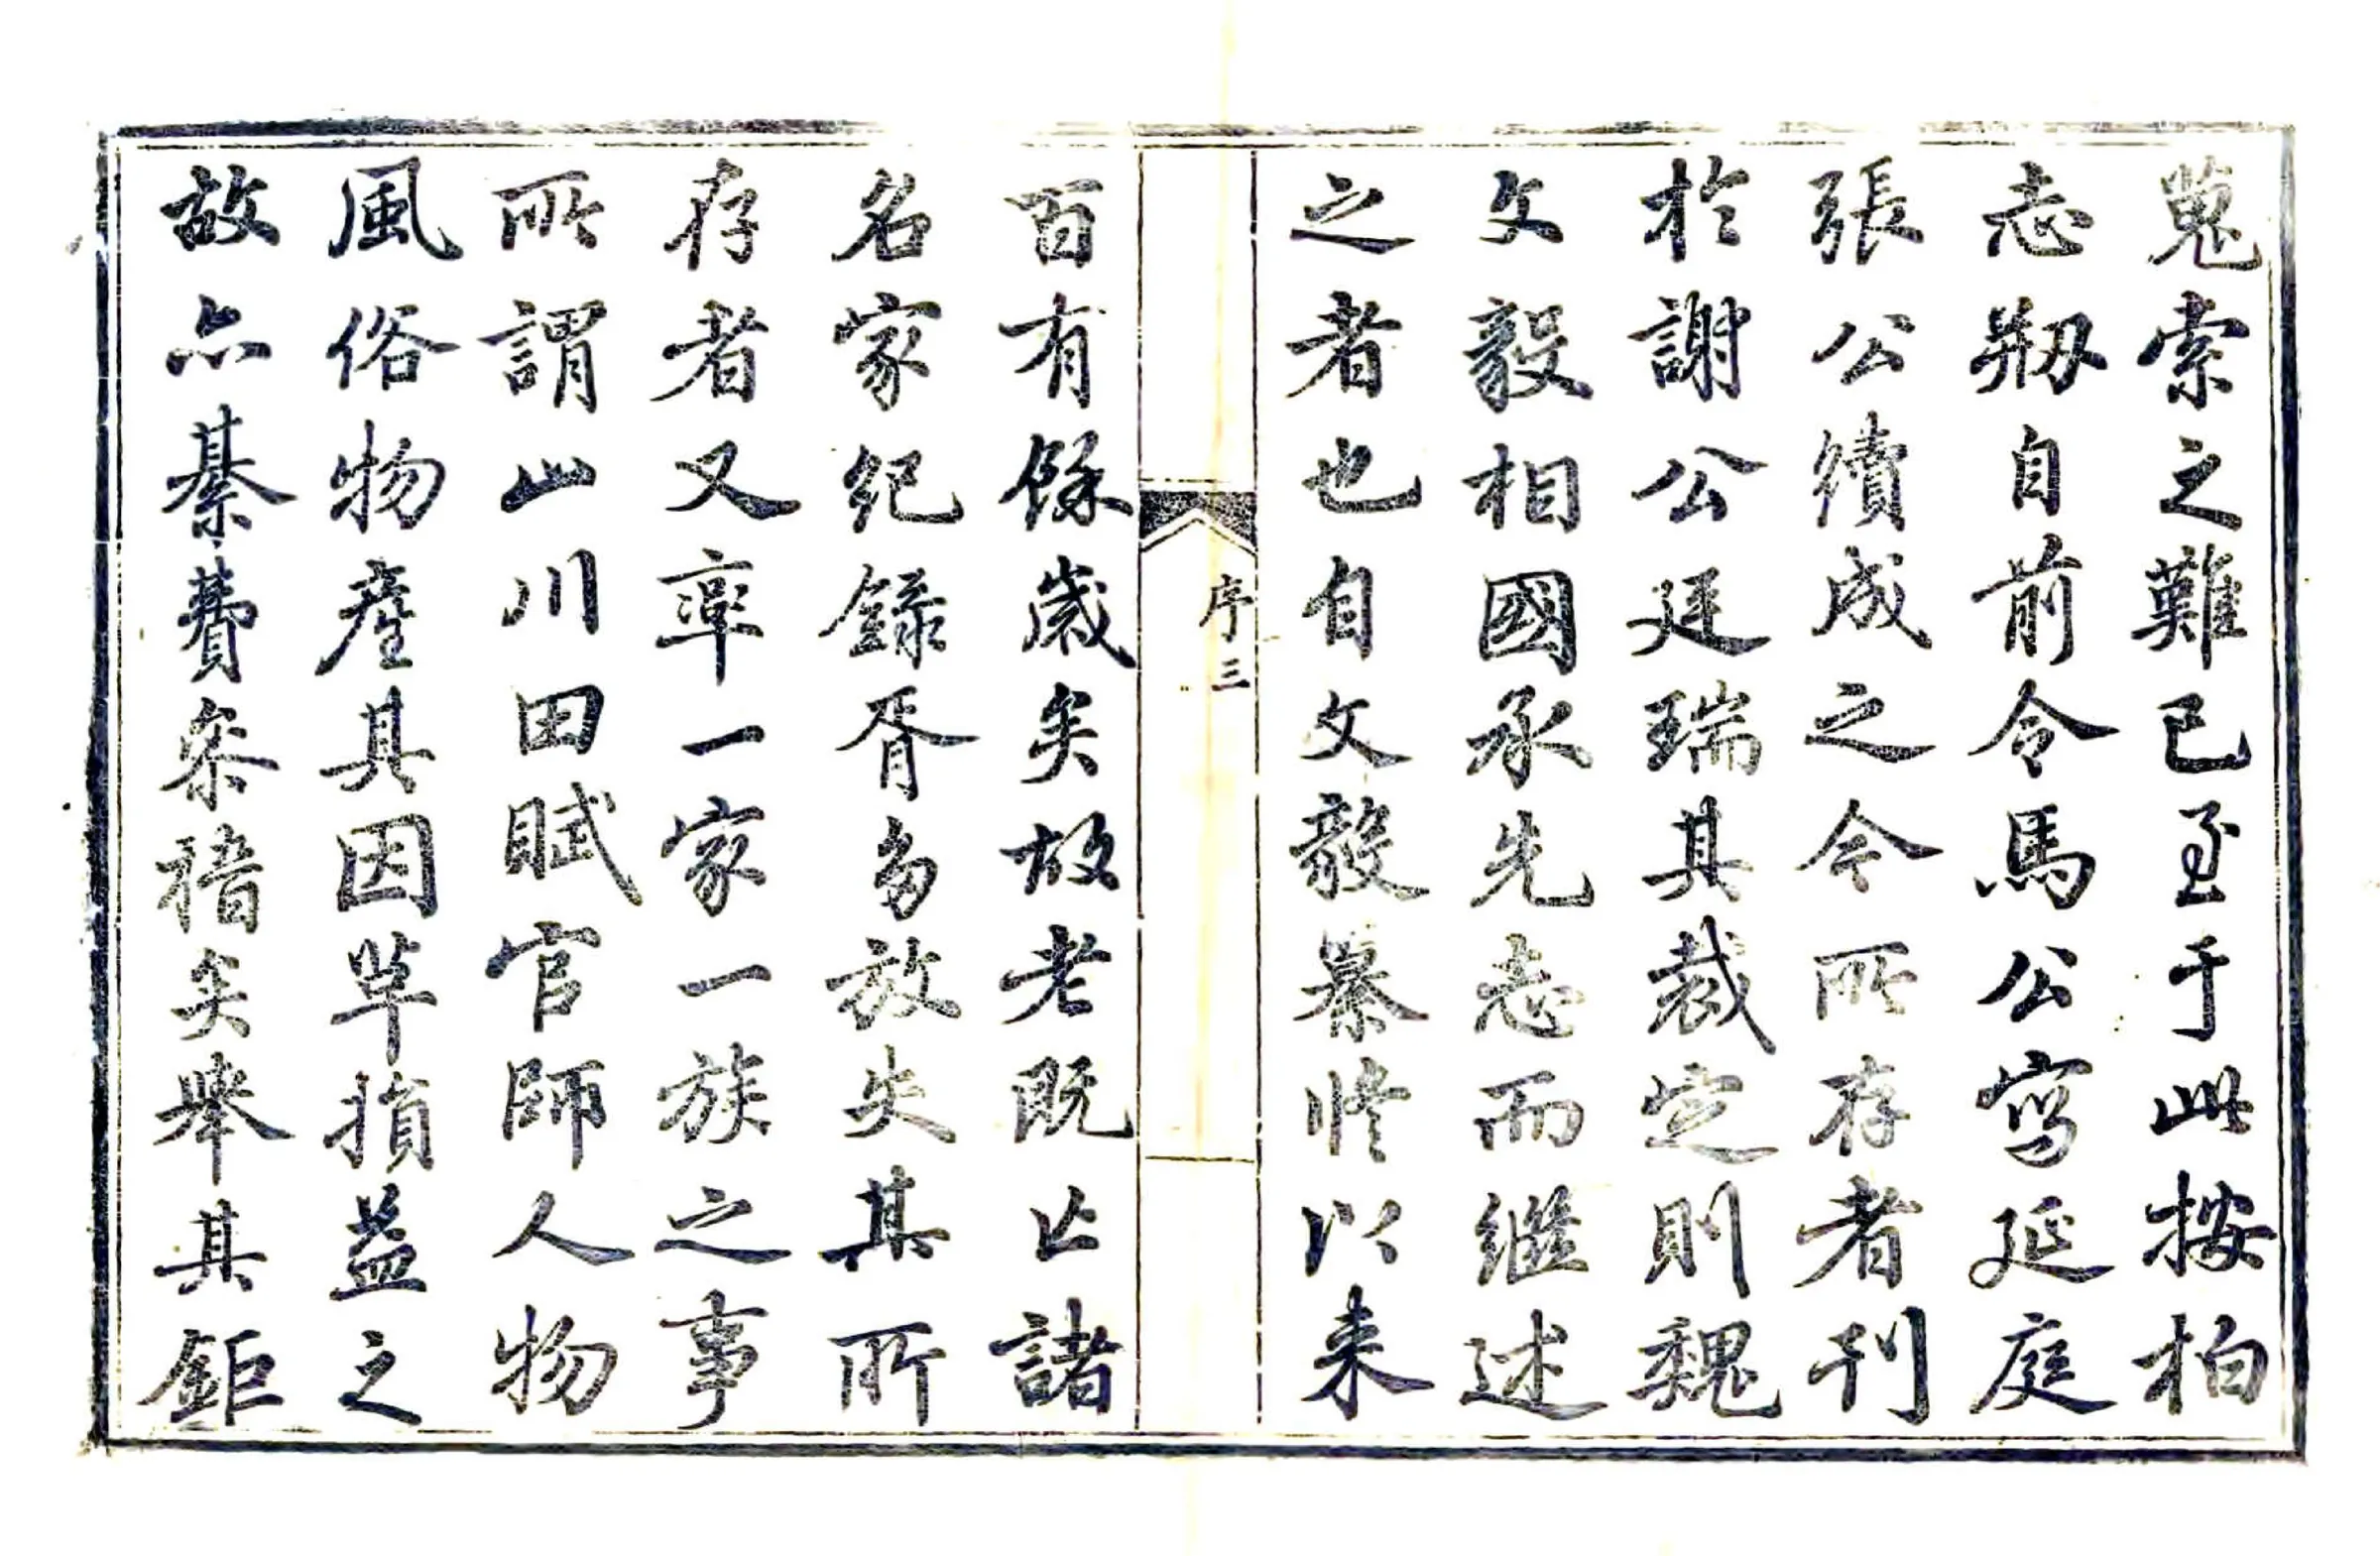 蒐索之難已至于此按柏
志剏自前令馬公寫延庭
張公續成之今所存者刊
於謝公廷瑞其裁定則魏
文毅相國承先志而繼述
之者也自文毅纂修以来
序三
百有餘歲矣故老既亾諸
名家紀錄胥多放失其所
存者又率一家一族之事
所謂山川田賦官師人物
風俗物產其因革損益之
故亦綦費叅稽矣舉其鉅